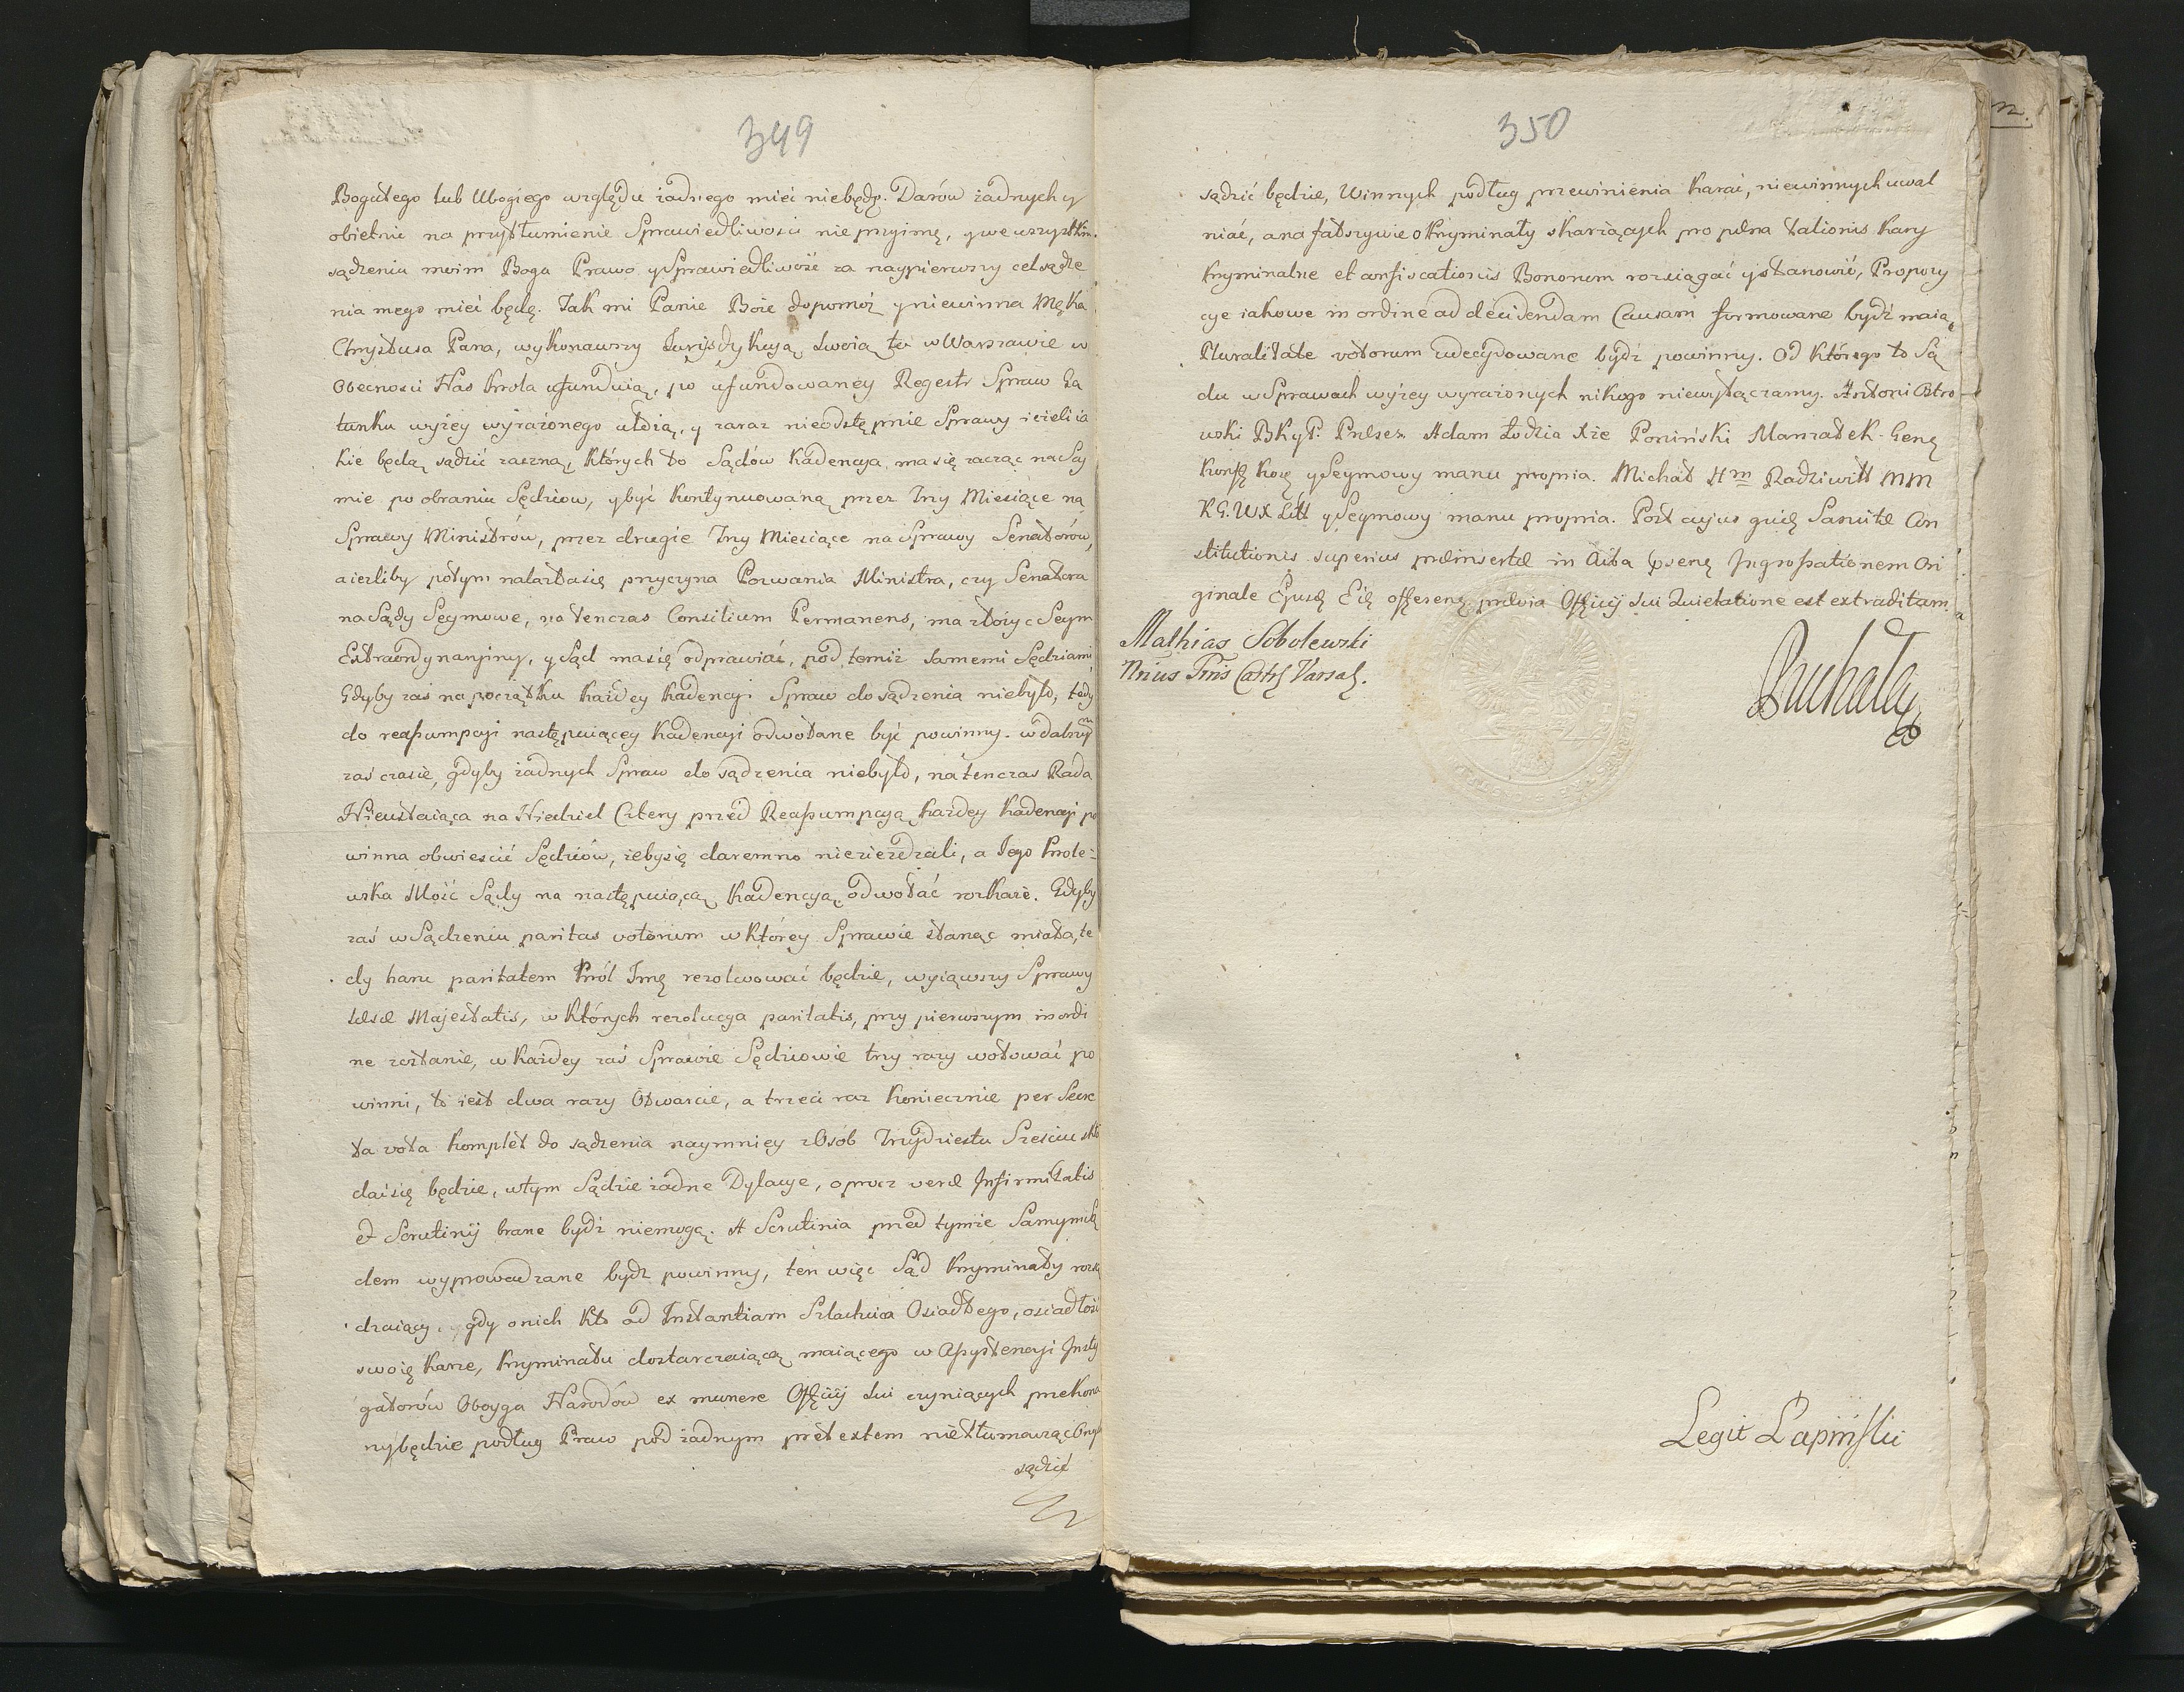 349
Bogatego lub Ubogiego względu żadnego mieć niebędę. Darów żadnych y
obietnic na przytłumienie Sprawiedliwości nie przyimę, y we wszystkim
sądzeniu moim Boga Prawo y Sprawiedliwość za naypierwszy cel sądze
nia mego mieć będę. Tak mi Panie Boże dopomóż y niewinna Męka
Chrystusa Pana, wykonawszy Jurysdykcyą swoią tu w Warszawie w
Obecności Nas Krola ufunduią, po ufundowaney Regestr Spraw Ga
tunku wyżey wyrażonego ułożą, y zaraz nieodstępnie Sprawy ieżeli ia
kie będą sądzić zaczną, których to Sądów Kadencya ma się zacząc na Sey
mie po obraniu Sędziow, y być kontynuowaną przez Trzy Miesiące na
Sprawy Ministrów, przez drugie Trzy Miesiące na Sprawy Senatorów,
a ieżliby potym nalazła się przyczyna Pozwania Ministra, czy Senatora
na Sądy Seymowe, na tenczas Consilium Permanens, ma złożyc Seym
Extraordynaryiny, y Sąd ma się odprawiać, pod temiż samemi Sędziami
Gdyby zaś na początku każdey Kadencyi Spraw do sądzenia niebyło, tedy
do reassumpcyi następuiącey Kadencyi odwołane być powinny. w dalszym
zaś czasie, gdyby żadnych Spraw do sądzenia niebyło, na tenczas Rada
Nieustaiąca na Niedziel Cztery przed Reassumpcyą każdey Kadencyi po
winna obwieścić Sędziów, żeby się daremno niezieżdzali, a Jego Krole-
wska Mość Sądy na następuiącą Kadencyą odwołać rozkaże. Gdyby
zaś w Sądzeniu paritas votorum w którey Sprawie stanąc miała, te
dy hanc paritatem Król Jmę rezolwować będzie, wyiąwszy Sprawy
læsæ Majestatis, w których rezolucya paritatis, przy pierwszym in ordi
ne zostanie, w każdey zaś Sprawie Sędziowie trzy razy wotować po
winni, to iest dwa razy Otwarcie, a trzeci raz koniecznie per Secre
ta vota komplet do sądzenia naymniey z Osób Trzydziestu Sześciu skł
dać się będzie, w tym Sądzie żadne Dylacye, oprocz veræ Infirmitatis
et Scrutinij brane bydź niemogą. A Scrutinia przed tymże Samym Są
dem wyprowadzane bydz powinny, ten więc Sąd Kryminały rozsą
dzaiący, gdy o nich kto ad Instantiam Szlachcica Osiadłego, osiadłość
swoię karze, kryminału dostarczaiącą maiącego w Assystencyi Insty
gatorów Oboyga Narodów ex munere Offcij sui czyniących przekona
ny będzie podług Praw pod żadnym pretextem nietłumacząc Onych
sądzić
350
sądzić będzie, Winnych podług przewinienia karać, niewinnych uwal
niać, a na fałszywie o Kryminały skarżących pro pæna talionis kary
kryminalne et confiscationis Bonorum rozciągać y stanowić, Propozy
cye iakowe in ordine ad decidendam Causam formowane bydź maią,
Pluralitate votorum zdecydowane bydz powinny. Od którego to Są
du w Sprawach wyżey wyrażonych nikogo niewyłączamy. Antoni Ostro
wski BKyP. Prezes Adam Łodzia Xże Poniński Marszałek Genę
Konfę Korę y Seymowy manu propria. Michał Hm Radziwiłł MM
KG.WX Litt y Seymowy manu propria. Post cujus quidę Sancitæ Con
stitutionis superius præinsertæ in Acta pręsenę Ingrossationem Ori
ginale Ejusdę Eidę offerenę prævia Officij sui Quietatione est extraditam
Mathias Sobolewski
Legit Łapiński